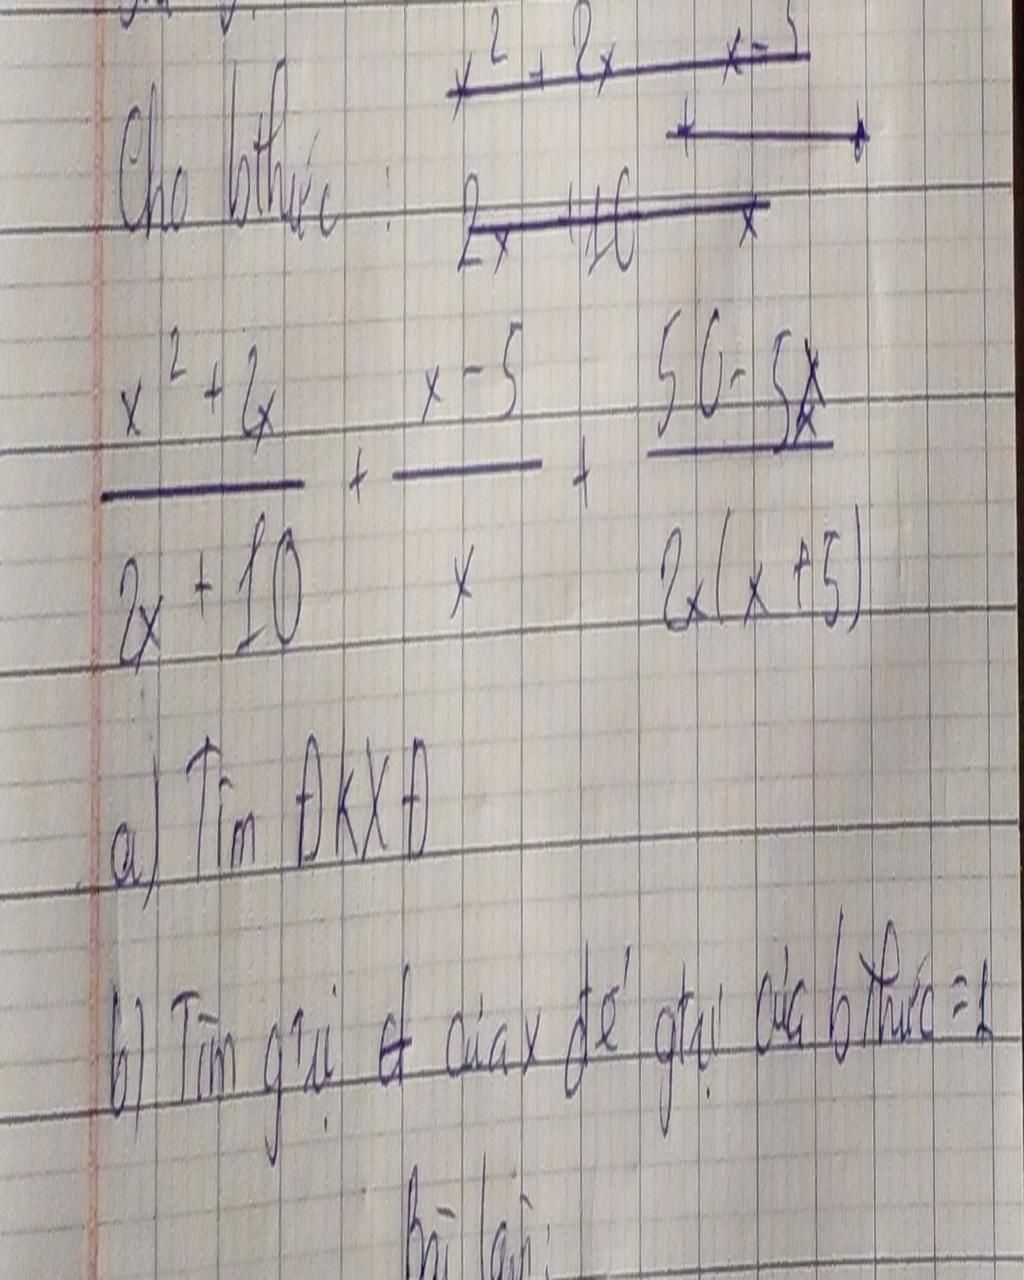 Cho bthức :
x² + 2x x - 5
2x + 10 x
x² + 2x / 2x + 10 + x - 5 / x + 50 - 5x / 2x(x + 5)
a) Tìm ĐKXĐ
b) Tìm gtrị của x để gtrị của bthức = 1
Bài làm: